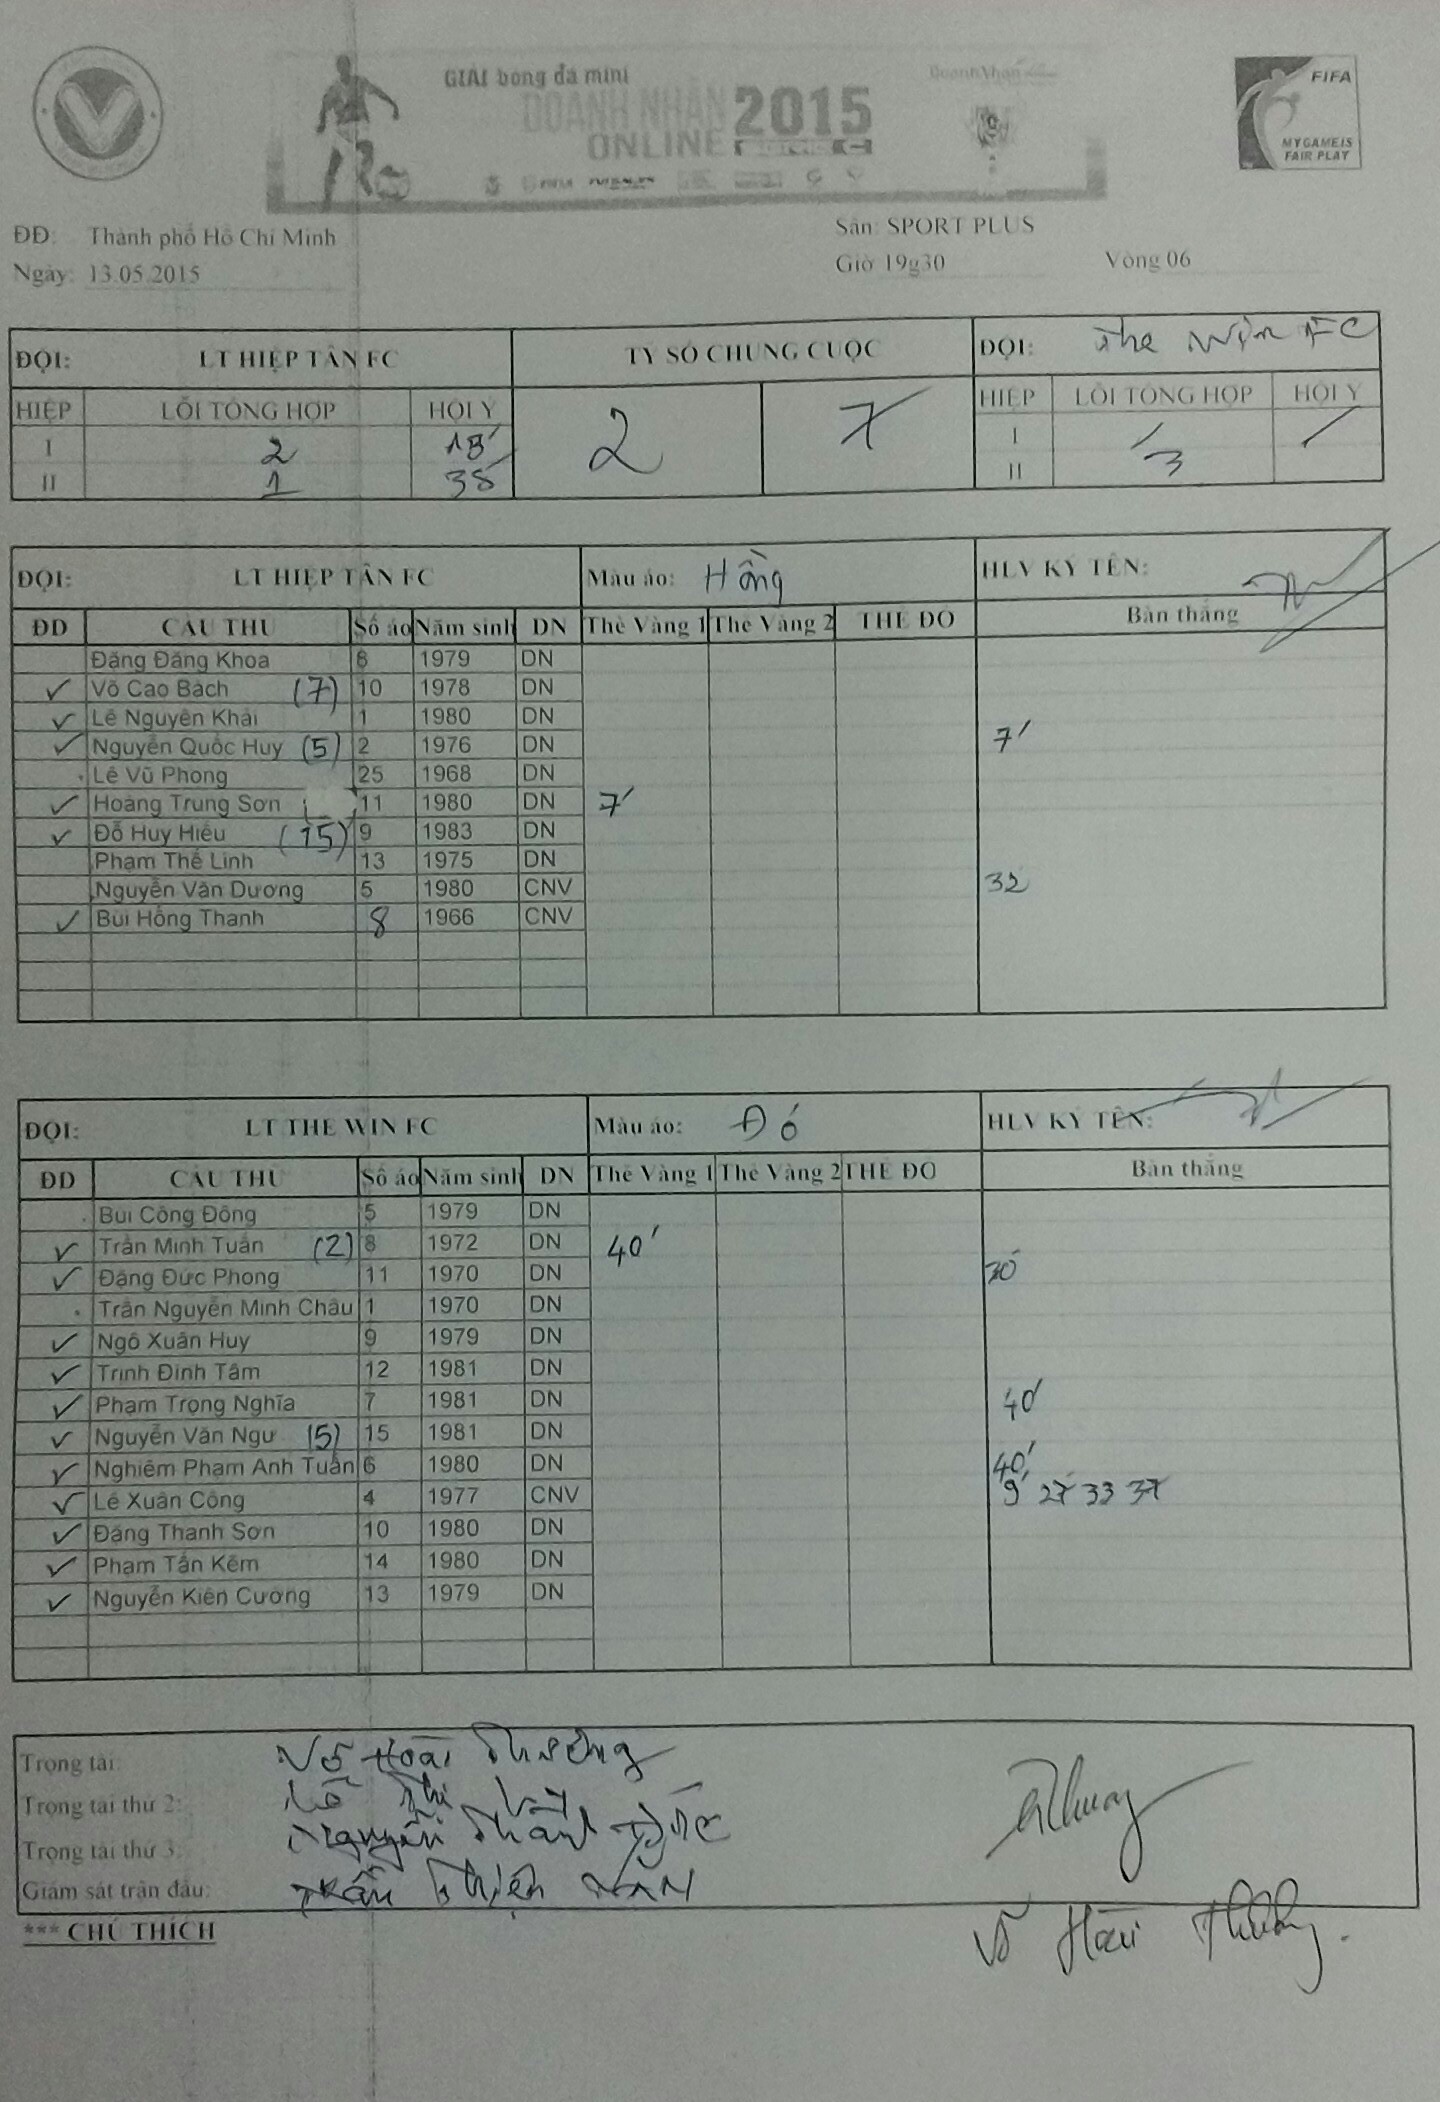 GIẢI bóng đá mini
DOANH NHÂN 2015
ONLINE
FIFA
MY GAME IS
FAIR PLAY
ĐĐ: Thành phố Hồ Chí Minh
Sân: SPORT PLUS
Ngày: 13.05.2015
Giờ 19g30 Vòng 06
ĐỘI: LT HIỆP TÂN FC TỶ SỐ CHUNG CUỘC ĐỘI: The Win FC
HIỆP LỖI TỔNG HỢP HỘI Ý 2 7 HIỆP LỖI TỔNG HỢP HỘI Ý
I 2 18' I / /
II 1 38' II 3
ĐỘI: LT HIỆP TÂN FC Màu áo: Hồng HLV KÝ TÊN:
ĐD CẦU THỦ Số áo Năm sinh DN Thẻ Vàng 1 Thẻ Vàng 2 THẺ ĐỎ Bàn thắng
Đặng Đăng Khoa 8 1979 DN
✓ Võ Cao Bách (7) 10 1978 DN
✓ Lê Nguyên Khải 1 1980 DN
✓ Nguyễn Quốc Huy (5) 2 1976 DN 7'
Lê Vũ Phong 25 1968 DN
✓ Hoàng Trung Sơn 11 1980 DN 7'
✓ Đỗ Huy Hiếu (15) 9 1983 DN
Phạm Thế Linh 13 1975 DN
Nguyễn Văn Dương 5 1980 CNV 32
✓ Bùi Hồng Thanh 8 1966 CNV
ĐỘI: LT THE WIN FC Màu áo: Đỏ HLV KÝ TÊN:
ĐD CẦU THỦ Số áo Năm sinh DN Thẻ Vàng 1 Thẻ Vàng 2 THẺ ĐỎ Bàn thắng
Bùi Công Đông 5 1979 DN
✓ Trần Minh Tuấn (2) 8 1972 DN 40'
✓ Đặng Đức Phong 11 1970 DN 30'
Trần Nguyễn Minh Châu 1 1970 DN
✓ Ngô Xuân Huy 9 1979 DN
✓ Trịnh Đình Tâm 12 1981 DN
✓ Phạm Trọng Nghĩa 7 1981 DN 40'
✓ Nguyễn Văn Ngư (5) 15 1981 DN
✓ Nghiêm Phạm Anh Tuấn 6 1980 DN 40'
✓ Lê Xuân Công 4 1977 CNV 9' 27' 33 37
✓ Đặng Thanh Sơn 10 1980 DN
✓ Phạm Tấn Kẽm 14 1980 DN
✓ Nguyễn Kiên Cương 13 1979 DN
Trọng tài: Võ Hoài Thương
Trọng tài thứ 2: Lê Thị Ly
Trọng tài thứ 3: Nguyễn Thành
Giám sát trận đấu: Trần Thiện
*** CHÚ THÍCH
Võ Hoài Thương.